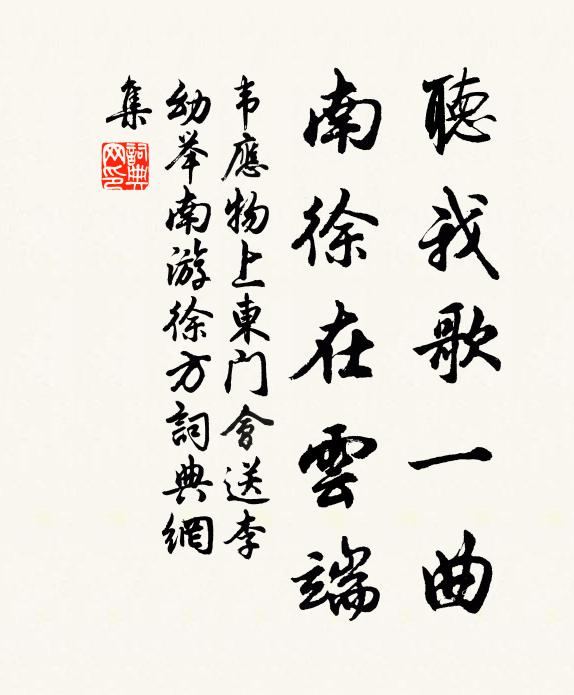 聽我歌一曲
南徐在雲端
韦應物上東門會送李
幼举南游徐方詞典網
集
詞典网印